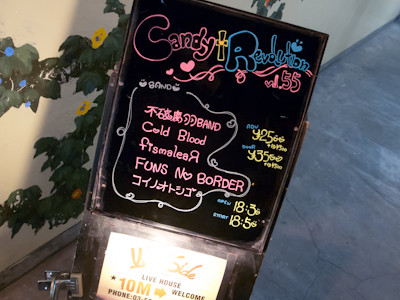 Candy†Revolution
vol.55
BAND
不破島
BAND
Cold Blood
FUNS NO BORDER
コイノオトシゴ
ADV ¥2500
DOOR ¥3500
OPEN 18:30
START 18:50
LIVE HOUSE
10M → WELCOME
PHONE:03-